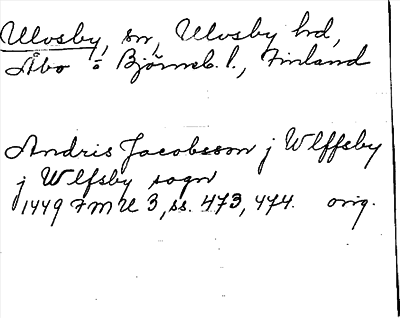 Ulvsby, sn, Ulvsby hd,
Åbo o Björneb. l., Finland
Andris Jacobsson j Wlffsby
j Wlfsby sogn
1449 FMU 3, ss. 473, 474. orig.